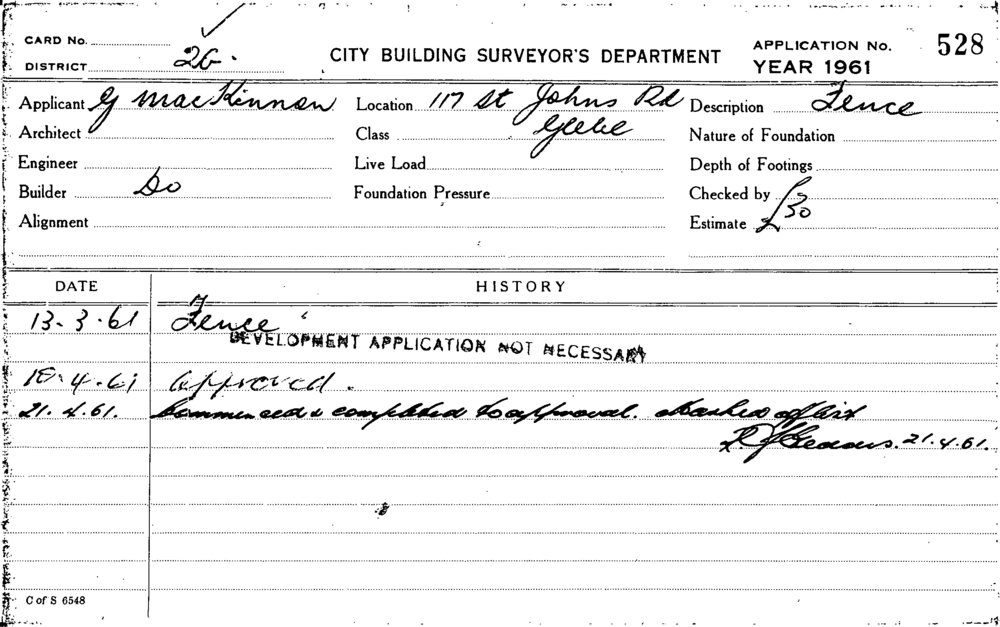 CARD No.
DISTRICT 26.
CITY BUILDING SURVEYOR'S DEPARTMENT
APPLICATION No. 528
YEAR 1961
Applicant G MacKinnon
Location 117 St Johns Rd
Glebe
Description Fence
Architect
Class
Nature of Foundation
Engineer
Live Load
Depth of Footings
Builder Do
Foundation Pressure
Checked by
Alignment
Estimate £30
DATE
HISTORY
13.3.61 Fence
DEVELOPMENT APPLICATION NOT NECESSARY
18.4.61 Approved.
21.4.61. Commenced & completed to approval. Marked off list
Geddes. 21.4.61.
C of S 6548